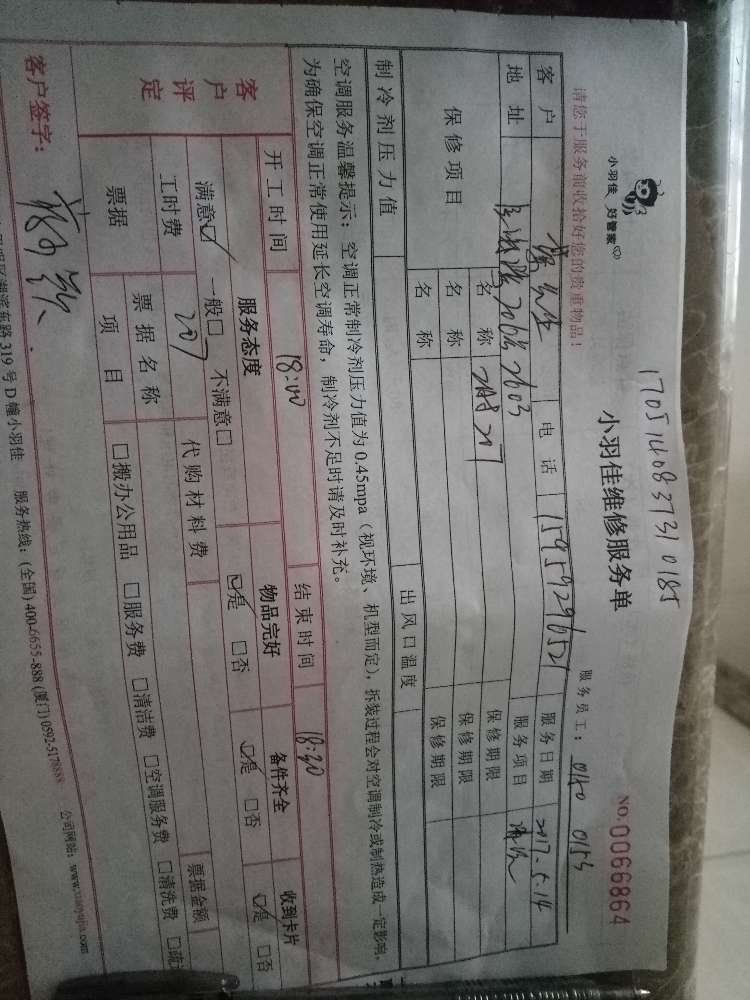 1705140837310185
小羽佳 好管家
小羽佳维修服务单
NO.0066864
请您于服务前收拾好您的贵重物品!
服务员工: 0140 0153
客户 先生 电话 15959296521 服务日期 2017.5.14
地址 2603 服务项目 清洗
保修项目 名称 保修期限
名称 保修期限
名称 保修期限
制冷剂压力值 出风口温度
空调服务温馨提示:空调正常制冷剂压力值为0.45mpa(视环境、机型而定),拆装过程会对空调制冷或制热造成一定影响。
为确保空调正常使用延长空调寿命,制冷剂不足时请及时补充。
开工时间 18:00 结束时间 18:30
客户评定 服务态度 物品完好 备件齐全 收到卡片
满意☑ 一般□ 不满意□ ☑是 □否 ☑是 □否 ☑是 □否
工时费 207 代购材料费
票据 票据名称 票据金额
项目 □搬办公用品 □服务费 □清洁费 □空调服务费 □清洗费
客户签字:
东路319号D幢小羽佳 服务热线:(全国)400-6655-888(厦门)0592-5178888 公司网站:www.xiaoyujia.com